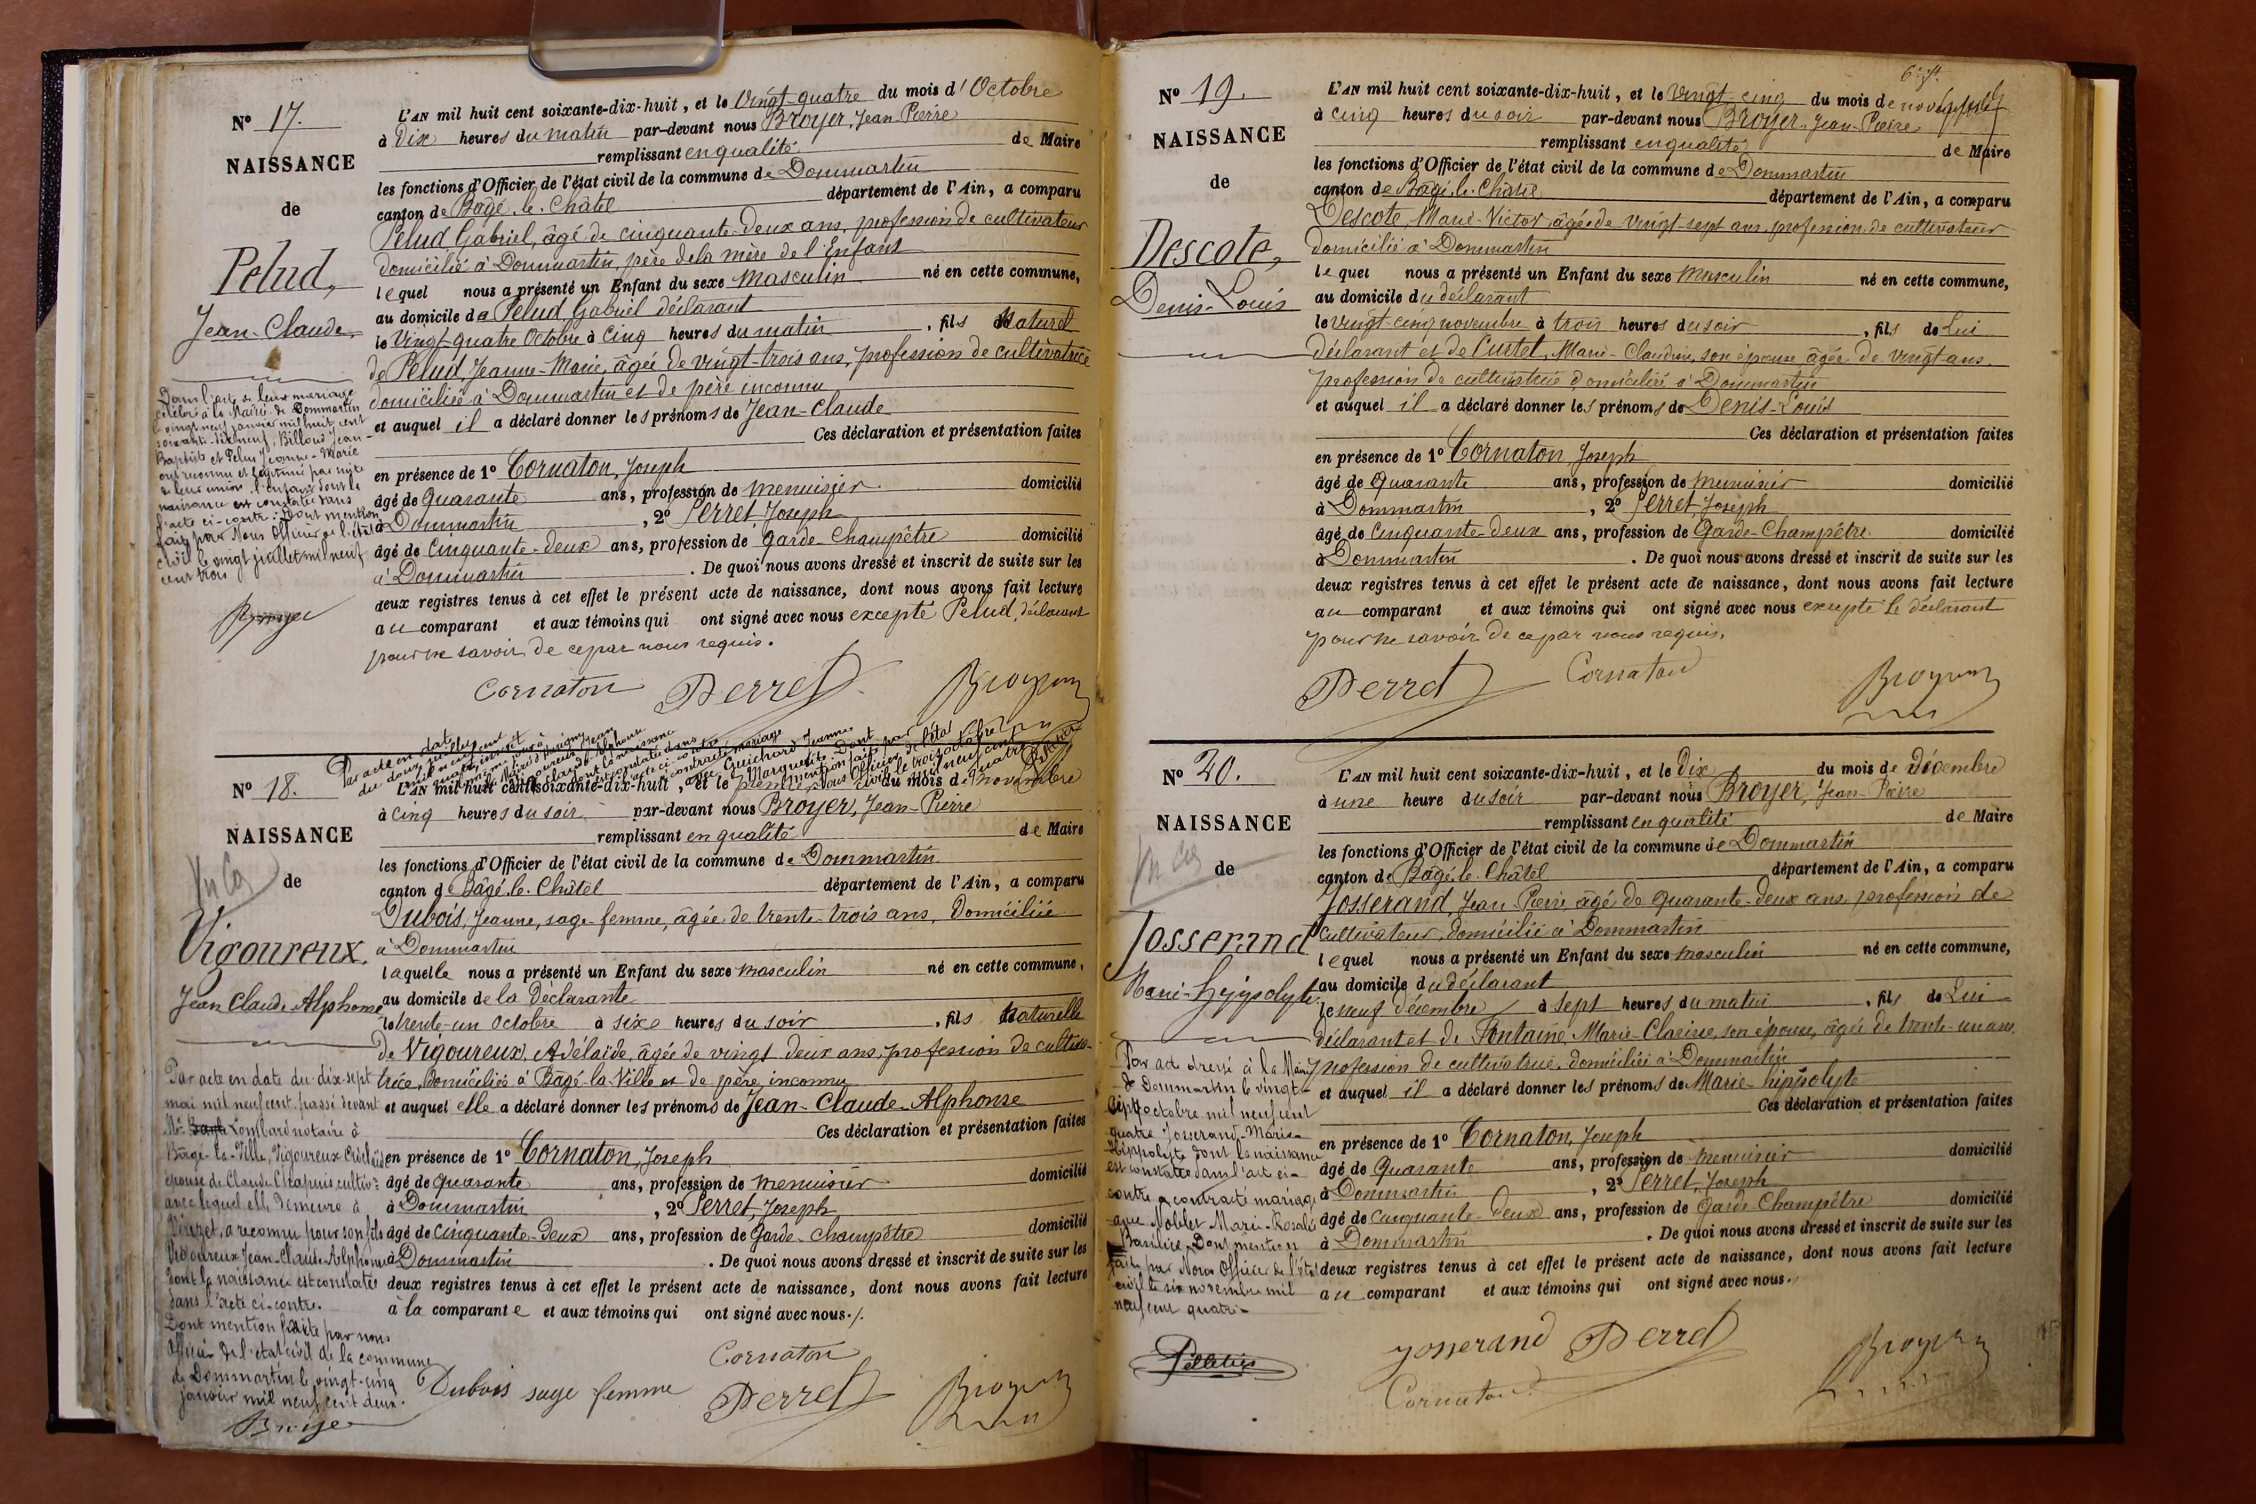 N° 17.
NAISSANCE
de
Pelud,
Jean-Claude,
Dans l'acte de leur mariage
célébré à la Mairie de Dommartin
le vingt neuf janvier mil huit cent
soixante-dix neuf, Billoud Jean-
Baptiste et Pelud Jeanne-Marie
ont reconnu et légitimé par suite
de leur union l'enfant dont la
naissance est constatée dans
l'acte ci-contre. Dont mention
faite par Nous Officier de l'état
civil le vingt juillet mil neuf
cent trois
L'AN mil huit cent soixante-dix-huit, et le Vingt-quatre du mois d'Octobre
à Dix heures du matin par-devant nous Broyer, Jean-Pierre
remplissant en qualité de Maire
les fonctions d'Officier de l'état civil de la commune de Dommartin
canton de Bâgé-le-Châtel département de l'Ain, a comparu
Pelud Gabriel, âgé de cinquante-deux ans, profession de cultivateur
domicilié à Dommartin, père de la mère de l'Enfant
lequel nous a présenté un Enfant du sexe Masculin né en cette commune,
au domicile de Pelud Gabriel déclarant
le Vingt-quatre Octobre à Cinq heures du matin, fils Naturel
de Pelud, Jeanne-Marie, âgée de vingt-trois ans, profession de cultivatrice
domiciliée à Dommartin et de père inconnu
et auquel il a déclaré donner les prénoms de Jean-Claude
Ces déclaration et présentation faites
en présence de 1° Cornaton, Joseph
âgé de Quarante ans, profession de menuisier domicilié
à Dommartin, 2° Perret, Joseph
âgé de Cinquante-deux ans, profession de garde-Champêtre domicilié
à Dommartin. De quoi nous avons dressé et inscrit de suite sur les
deux registres tenus à cet effet le présent acte de naissance, dont nous avons fait lecture
au comparant et aux témoins qui ont signé avec nous excepté Pelud, déclarant
pour ne savoir de ce par nous requis.
Cornaton Perret Broyer
N° 18.
NAISSANCE
de
Vigoureux.
Jean Claude-Alphonse
Par acte en date du dix-sept
mai mil neuf cent passé devant
Me Lombard notaire à
Bâgé-la-Ville, Vigoureux Adélaïde
épouse de Claude Chapuis cultivr
avec lequel elle demeure à
a reconnu pour son fils
Vigoureux Jean-Claude-Alphonse
dont la naissance est constatée
dans l'acte ci-contre.
Dont mention faite par nous
Officier de l'état civil de la commune
de Dommartin le vingt-cinq
janvier mil neuf cent deux.
Par acte en date
Vigoureux Jean
Claude-Alphonse
dont la naissance
est constatée dans
l'acte ci-contre
a contracté mariage
avec Guichard Jeanne
Marguerite. Dont
mention faite par
Nous Officier de l'état
civil le trois octobre
mil neuf cent
quatre
L'AN mil huit cent soixante-dix-huit, et le premier du mois de novembre
à cinq heures du soir par-devant nous Broyer, Jean-Pierre
remplissant en qualité de Maire
les fonctions d'Officier de l'état civil de la commune de Dommartin
canton de Bâgé-le-Châtel département de l'Ain, a comparu
Dubois, Jeanne, sage-femme, âgée de trente-trois ans, Domiciliée
à Dommartin
laquelle nous a présenté un Enfant du sexe masculin né en cette commune,
au domicile de la Déclarante
le trente-un Octobre à sixe heures du soir, fils Naturelle
de Vigoureux, Adélaïde, âgée de vingt deux ans, profession de cultiva-
trice, domiciliée à Bâgé-la-Ville et de père inconnu
et auquel elle a déclaré donner les prénoms de Jean-Claude-Alphonse
Ces déclaration et présentation faites
en présence de 1° Cornaton, Joseph
âgé de quarante ans, profession de menuisier domicilié
à Dommartin, 2° Perret, Joseph
âgé de Cinquante-Deux ans, profession de Garde-champêtre domicilié
à Dommartin. De quoi nous avons dressé et inscrit de suite sur les
deux registres tenus à cet effet le présent acte de naissance, dont nous avons fait lecture
à la comparante et aux témoins qui ont signé avec nous./.
Cornaton
Dubois sage femme Perret Broyer
N° 19.
NAISSANCE
de
Descote,
Denis-Louis
L'AN mil huit cent soixante-dix-huit, et le Vingt-cinq du mois de novembre
à cinq heures du soir par-devant nous Broyer, Jean-Pierre
remplissant en qualité de Maire
les fonctions d'Officier de l'état civil de la commune de Dommartin
canton de Bâgé-le-Châtel département de l'Ain, a comparu
Descote, Marie-Victor, âgé de vingt-sept ans, profession de cultivateur
domicilié à Dommartin
lequel nous a présenté un Enfant du sexe masculin né en cette commune,
au domicile du déclarant
le vingt-cinq novembre à trois heures du soir, fils de Lui
déclarant et de Curtet, Marie-Claudine, son épouse âgée de vingt ans,
profession de cultivatrice domiciliée à Dommartin
et auquel il a déclaré donner les prénoms de Denis-Louis
Ces déclaration et présentation faites
en présence de 1° Cornaton, Joseph
âgé de Quarante ans, profession de menuisier domicilié
à Dommartin, 2° Perret, Joseph
âgé de Cinquante-deux ans, profession de Garde-Champêtre domicilié
à Dommartin. De quoi nous avons dressé et inscrit de suite sur les
deux registres tenus à cet effet le présent acte de naissance, dont nous avons fait lecture
au comparant et aux témoins qui ont signé avec nous excepté le déclarant
pour ne savoir de ce par nous requis.
Perret Cornaton Broyer
N° 20.
NAISSANCE
de
Josserand
Marie-hippolyte
Par acte dressé à la Mairie
de Dommartin le vingt-
sept octobre mil neuf cent
quatre Josserand-Marie-
Hippolyte dont la naissance
est constatée dans l'acte ci-
contre a contracté mariage
avec Noblet Marie-Rosalie
Dont mention
faite par Nous Officier de l'état
civil le six novembre mil
neuf cent quatre-
Pelletier
L'AN mil huit cent soixante-dix-huit, et le Dix du mois de Décembre
à une heure du soir par-devant nous Broyer, Jean-Pierre
remplissant en qualité de Maire
les fonctions d'Officier de l'état civil de la commune de Dommartin
canton de Bâgé-le-Châtel département de l'Ain, a comparu
Josserand, Jean-Pierre, âgé de quarante-deux ans, profession de
cultivateur, domicilié à Dommartin
lequel nous a présenté un Enfant du sexe masculin né en cette commune,
au domicile du déclarant
le neuf Décembre à sept heures du matin, fils de Lui
déclarant et de Fontaine, Marie-Clarisse, son épouse, âgée de trente-un ans,
profession de cultivatrice, domiciliée à Dommartin
et auquel il a déclaré donner les prénoms de Marie-hippolyte
Ces déclaration et présentation faites
en présence de 1° Cornaton, Joseph
âgé de Quarante ans, profession de menuisier domicilié
à Dommartin, 2° Perret, Joseph
âgé de cinquante-deux ans, profession de Garde-Champêtre domicilié
à Dommartin. De quoi nous avons dressé et inscrit de suite sur les
deux registres tenus à cet effet le présent acte de naissance, dont nous avons fait lecture
au comparant et aux témoins qui ont signé avec nous.
Josserand Perret Broyer
Cornaton